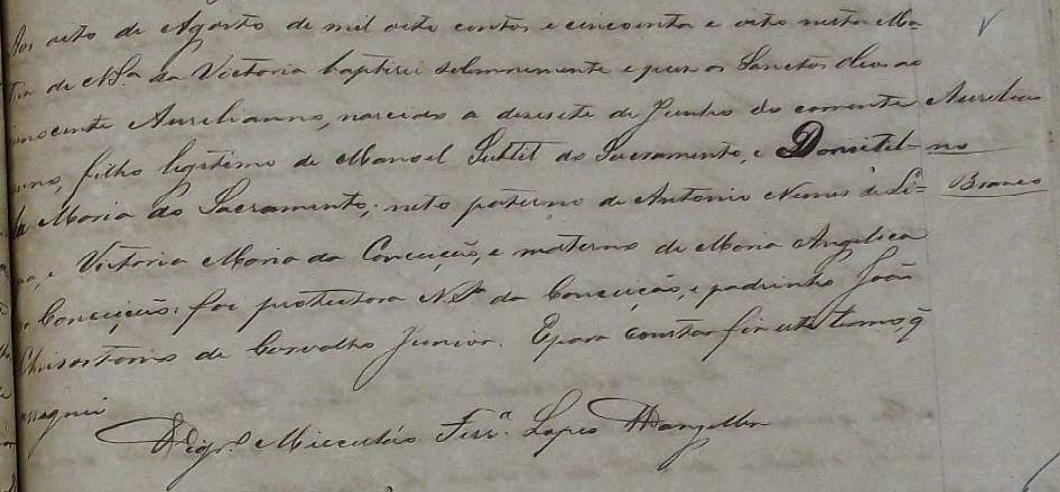 Aos oito de Agosto de mil oito centos e cincoenta e oito nesta Ma-
triz de N Sª. da Victoria baptisei solemnemente e puz os Sanctos Oleos ao
innocente Aurelianno, nascido a desesete de Junho do corrente
anno, filho legitimo de Manoel Subtil do Sacramento, e Domitil-
la Maria do Sacramento; neto paterno de Antonio Nunes de Li-
ma, e Victoria Maria da Conceição, e materno de Maria Angelica
Conceição: foi protectora N Sª da Conceição, e padrinho João
Chrisostomo de Carvalho Junior. E para constar fiz este termo, q̃
assignei
Vigrº. Ferrª. Lopes
Aurelian
no
Branco